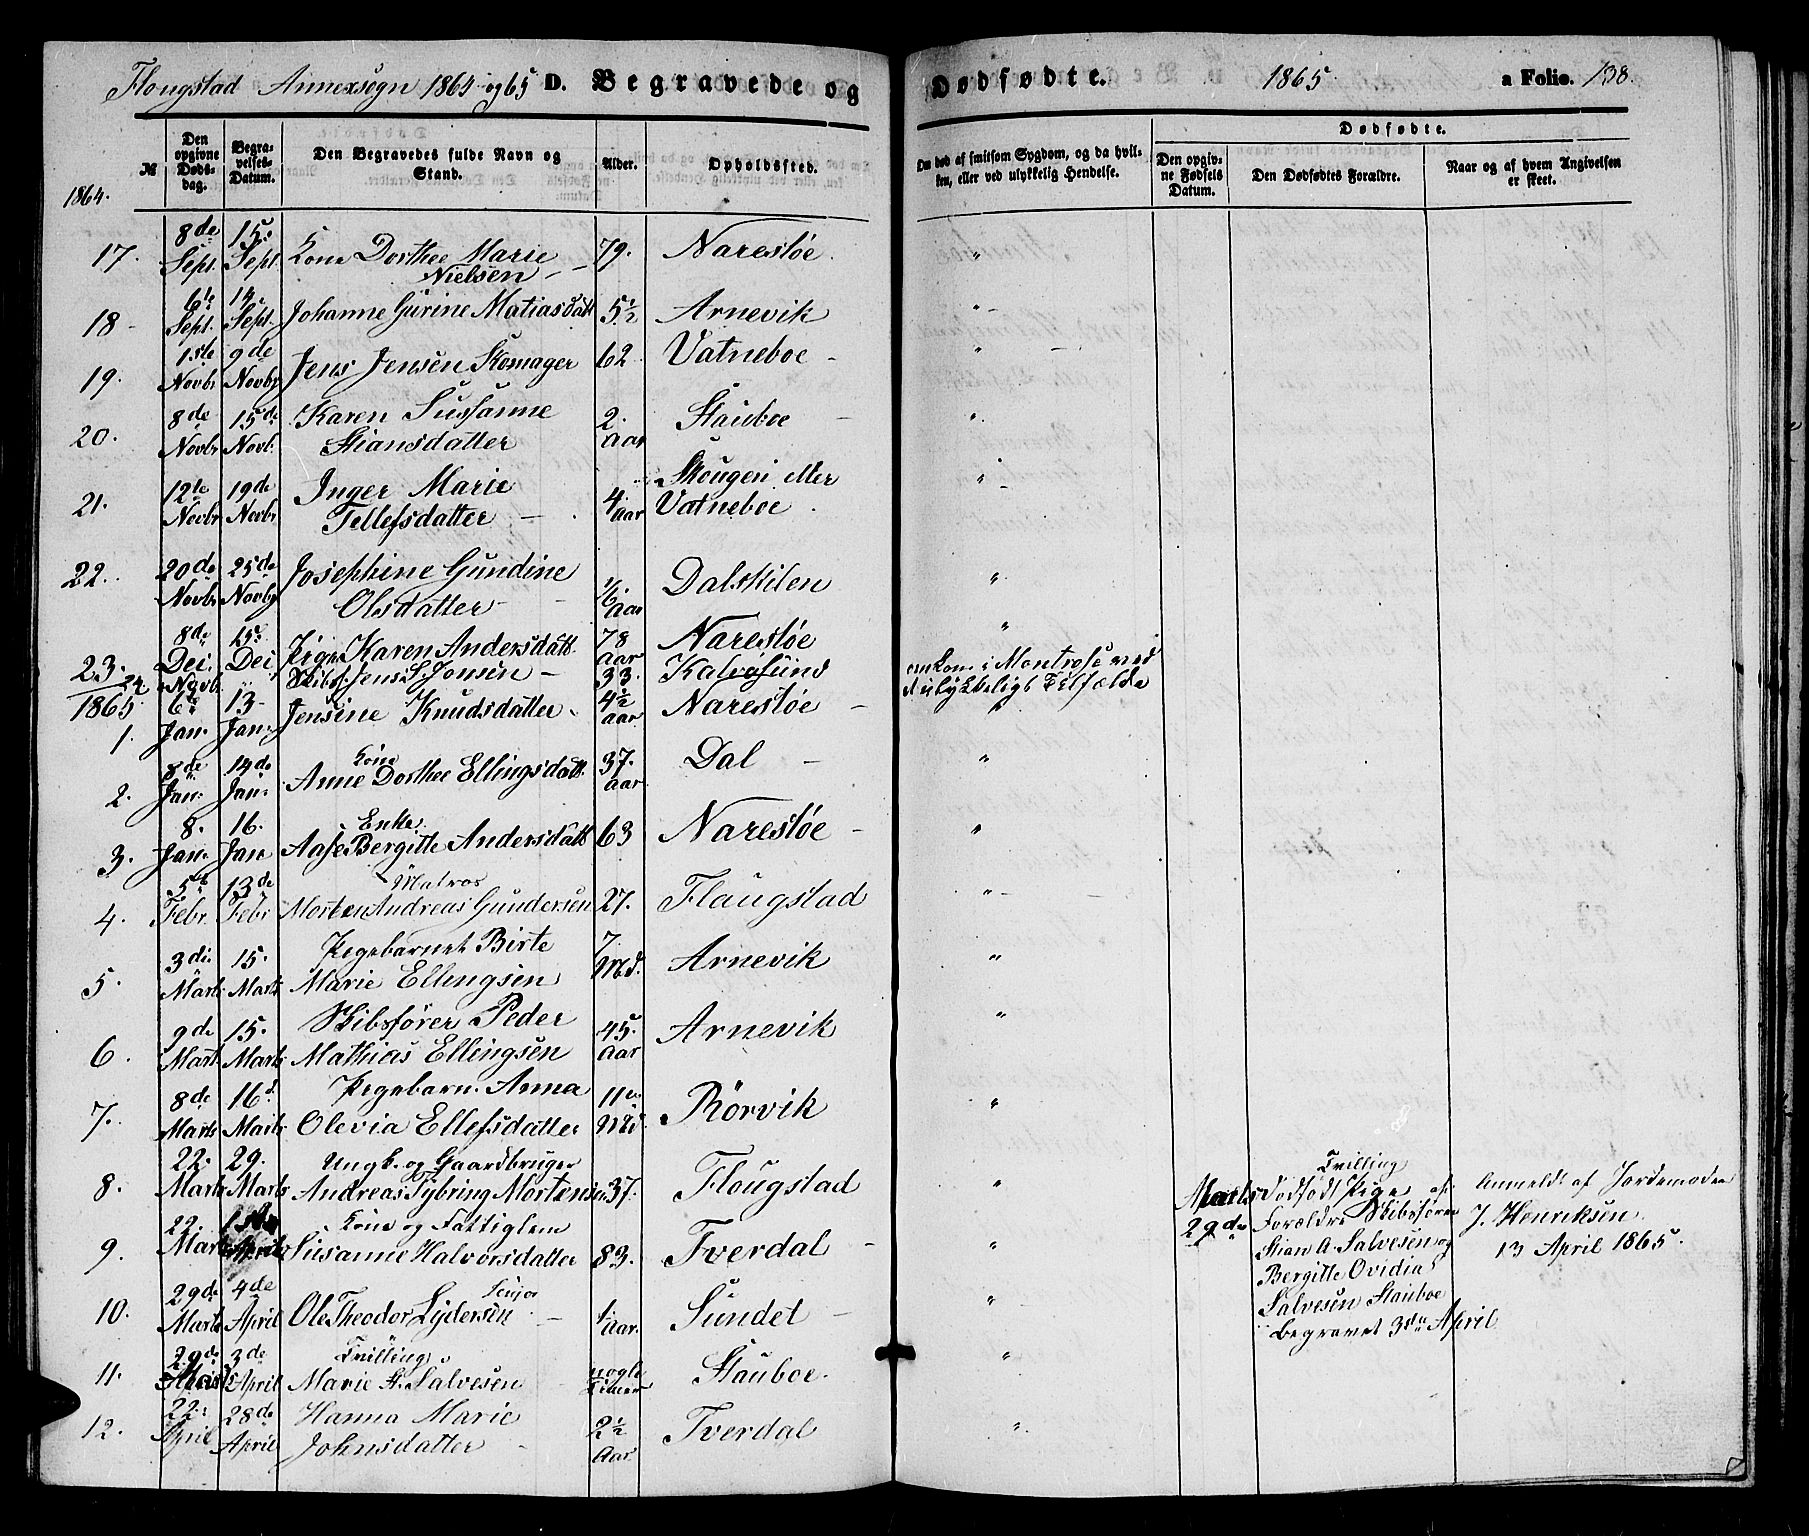 Flougstad Annexsogn 1864 og 65 D. Begravede og Dødfødte. 1865 a Folio. 138.
№
Den opgivne Døds-dag.
Begra-velses-Datum.
Den Begravedes fulde Navn og Stand.
Alder.
Opholdssted.
Om død af smitsom Sygdom, og da hvil-ken, eller ved ulykkelig Hendelse.
Dødfødte.
Den opgiv-ne Fødsels Datum.
Den Dødfødtes Forældre.
Naar og af hvem Angivelsen er skeet.
1864.
17. 8de Sept. 15de Sept. Kone Dorthee Marie Nielsen 79. Narestøe. "
18 6te Sept. 14 Sept. Johanne Gurine Matiasdatt 5½ Arnevik "
19. 1ste Novbr 9de Novbr Jens Jensen Skomager 62 Vatneboe "
20. 8de Novbr 15de Novb. Karen Susanne Stiansdatter 2. Aar Stauboe "
21. 12te Novbr 19de Novbr Inger Marie Tellefsdatter 4 Aar Skougen eller Vatneboe. "
22. 20de Novbr 25de Novbr Josephine Gundine Olsdatter 1/6 Aar Dalskilen "
23. 8de Dec. 15de Dec. Pige Karen Andersdatt. 78 Aar Narestøe "
24. Novb. Skibsf. Jens S. Jensen 33. Kalvøsund omkom i Montrose ved et ulykkeligt Tilfælde
1865
1. 6te Jan. 13 Jan. Jensine Knudsdatter 4½ Aar Narestøe "
2. 8de Jan. 14de Jan. Kone Anne Dorthee Ellingsdatt. 37. Aar Dal "
3. 8. Jan. 16. Jan Enke Aase Bergitte Andersdatt 63 Narestøe "
4. 5te Febr. 13de Febr Matros Morten Andreas Gundersen 27. Flaugstad "
5. 3die Marts 15. Marts Pigebarnet Birte Marie Ellingsen 7. Md. Arnevik "
6. 9de Marts 15. Marts Skibsfører Peder Mathias Ellingsen 45. Aar Arnevik "
7. 8de Marts 16d. Marts Pigebarn. Anna Olevia Ellefsdatter 11 Md. Rörvik "
8. 22. Marts 29. Marts Ungk. og Gaardbruger Andreas Tybring Mortensen 37. Flougstad "
9. 22. Marts 1ste April Kone og Fattiglem Susanne Halvorsdatter 83. Tverdal "
10. 29de Marts 4de April Ole Theodor Lydersen 1. Aar. Sundet "
11. 29de Marts 3de April Tvilling Marie St. Salvesen nogle Timer Stauboe. "
12. 22. April 28de April Hanna Marie Johnsdatter 2½ Aar Tverdal "
Marts 29de
Tvilling
Dödfödt Pige af
Forældre Skibsfører
Stian A. Salvesen og
Bergitte Ovidia
Salvesen Stauboe
begravet 3die April
Anmeldt af Jordemoder
J. Henriksen
13 April 1865.